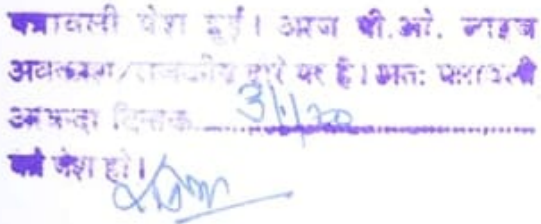 पत्रावली पेश हुई। आज पी.ओ. साहब
अवकाश/राजकीय दौरे पर है। अतः पत्रावली
आयन्दा दिनांक....3/1/20....
को पेश हो।